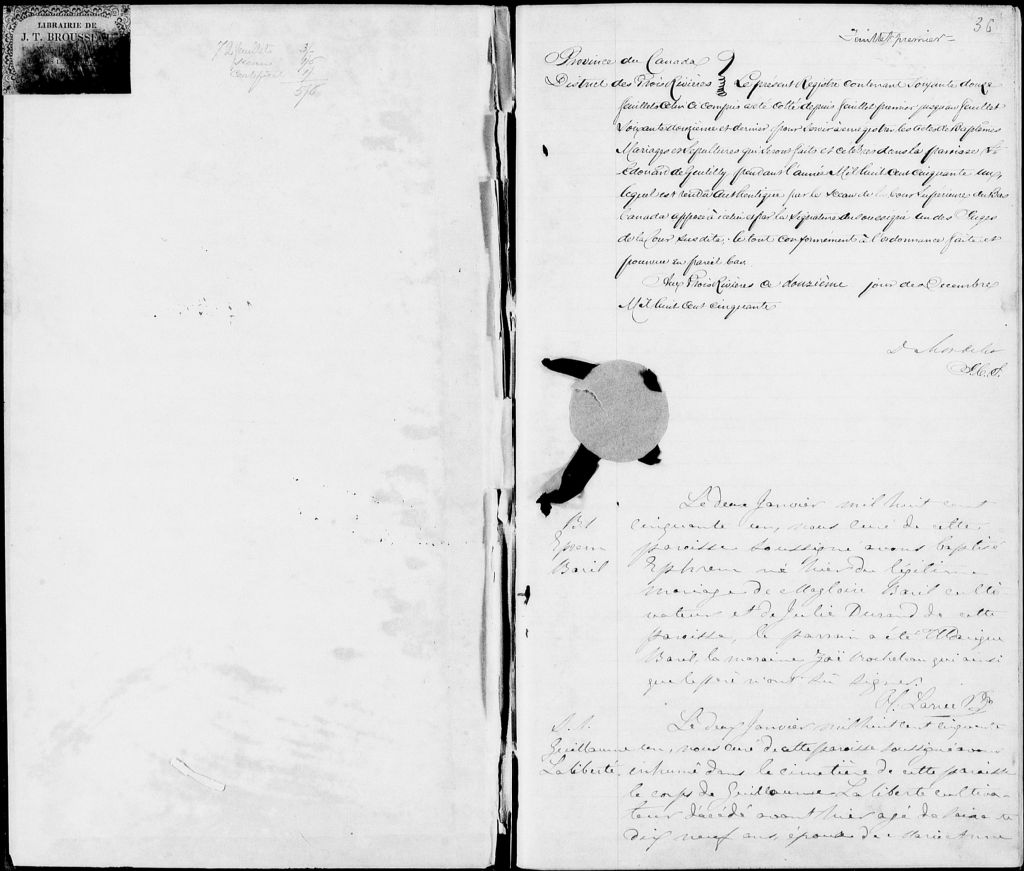 LIBRAIRIE DE
J. T. BROUSSEAU
72 feuillets 3/-
Sceau
Certificat
5/6
36
Feuillet premier
Province du Canada
District des Trois Rivières } Le présent Registre contenant Soixante douze
feuillets celui ci compris a été coté depuis feuillet premier jusqu'au feuillet
Soixante douzième et dernier pour servir à enregistrer les Actes de Baptêmes
Mariages et Sépultures qui seront faits et célébrés dans la paroisse St
Edouard de Gentilly, pendant l'année Mil huit Cent Cinquante un,
lequel est rendu authentique par le Sceau de la Cour Supérieure du Bas
Canada apposé à icelui et par la Signature du soussigné un des Juges
de la Cour Susdite, le tout conformément à l'ordonnance faite et
pourvue en pareil Cas.
Aux Trois Rivières ce douzième jour de Decembre
Mil huit cent cinquante
D. Mondelet
J.C.S.
Le deux Janvier mil huit cent
B.1 cinquante un, nous curé de cette
Eprem paroisse soussigné avons baptisé
Baril Ephrem né hier du légitime
mariage de Magloire Baril culti
vateur et de Julie Durand de cette
paroisse, le parrain a été
Baril, la maraine Zoé Rocheleau qui ainsi
que le père n'ont su signer.
Le deux Janvier mil huit cent cinquante
S.1
Guillaume un, nous curé de cette paroisse soussigné avons
Laliberté inhumé dans le cimetière de cette paroisse
le corps de Guillaume Laliberté cultiva-
teur décédé avant hier agé de soixante
dix neuf ans, époux de Marie Anne